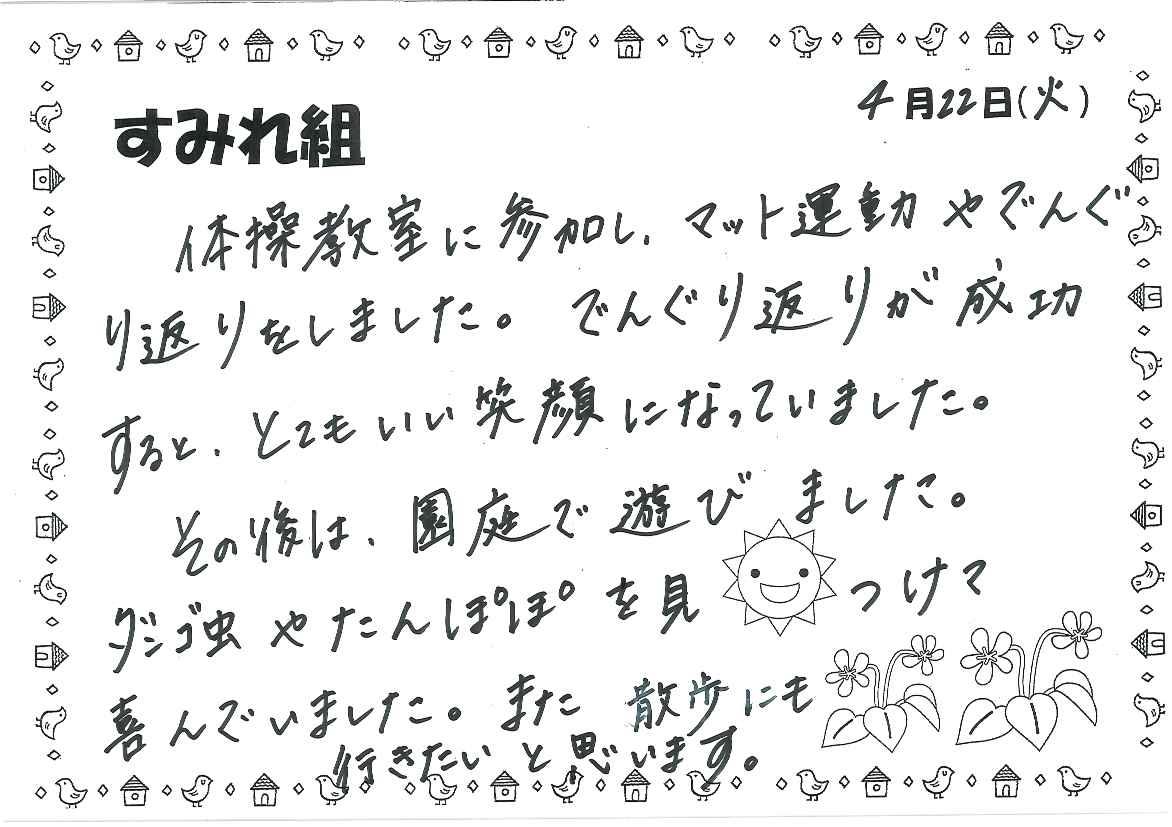 すみれ組
4月22日(火)
体操教室に参加し、マット運動やでんぐ
り返りをしました。でんぐり返りが成功
すると、とてもいい笑顔になっていました。
その後は、園庭で遊びました。
ダンゴ虫やたんぽぽを見つけて
喜んでいました。また散歩にも
行きたいと思います。